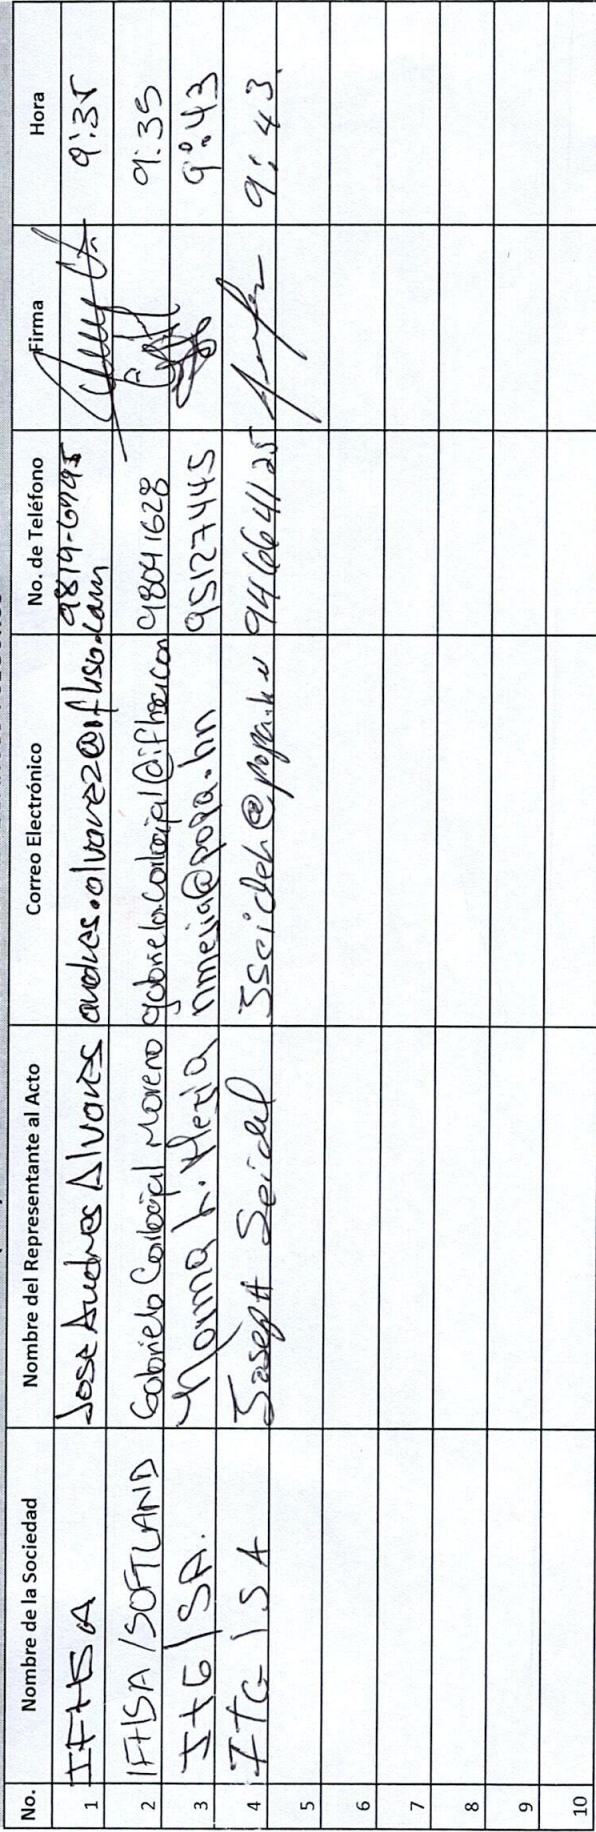 No. Nombre de la Sociedad Nombre del Representante al Acto Correo Electrónico No. de Teléfono Firma Hora
1 IFHSA José Andrés Alvares andres.alvarez@ifhsa.com 9819-6745 9:35
2 IFHSA/SOFTLAND Gabriela Carbajal Moreno gabriela.carbajal@ifhsa.com 98041628 9:35
3 ITG/SA. Norma L. Mejia nmejia@popa.hn 95127445 9:43
4 ITG/SA Joseph Seidel JSeidel@popa.hn 94664125 9:43.
5
6
7
8
9
10